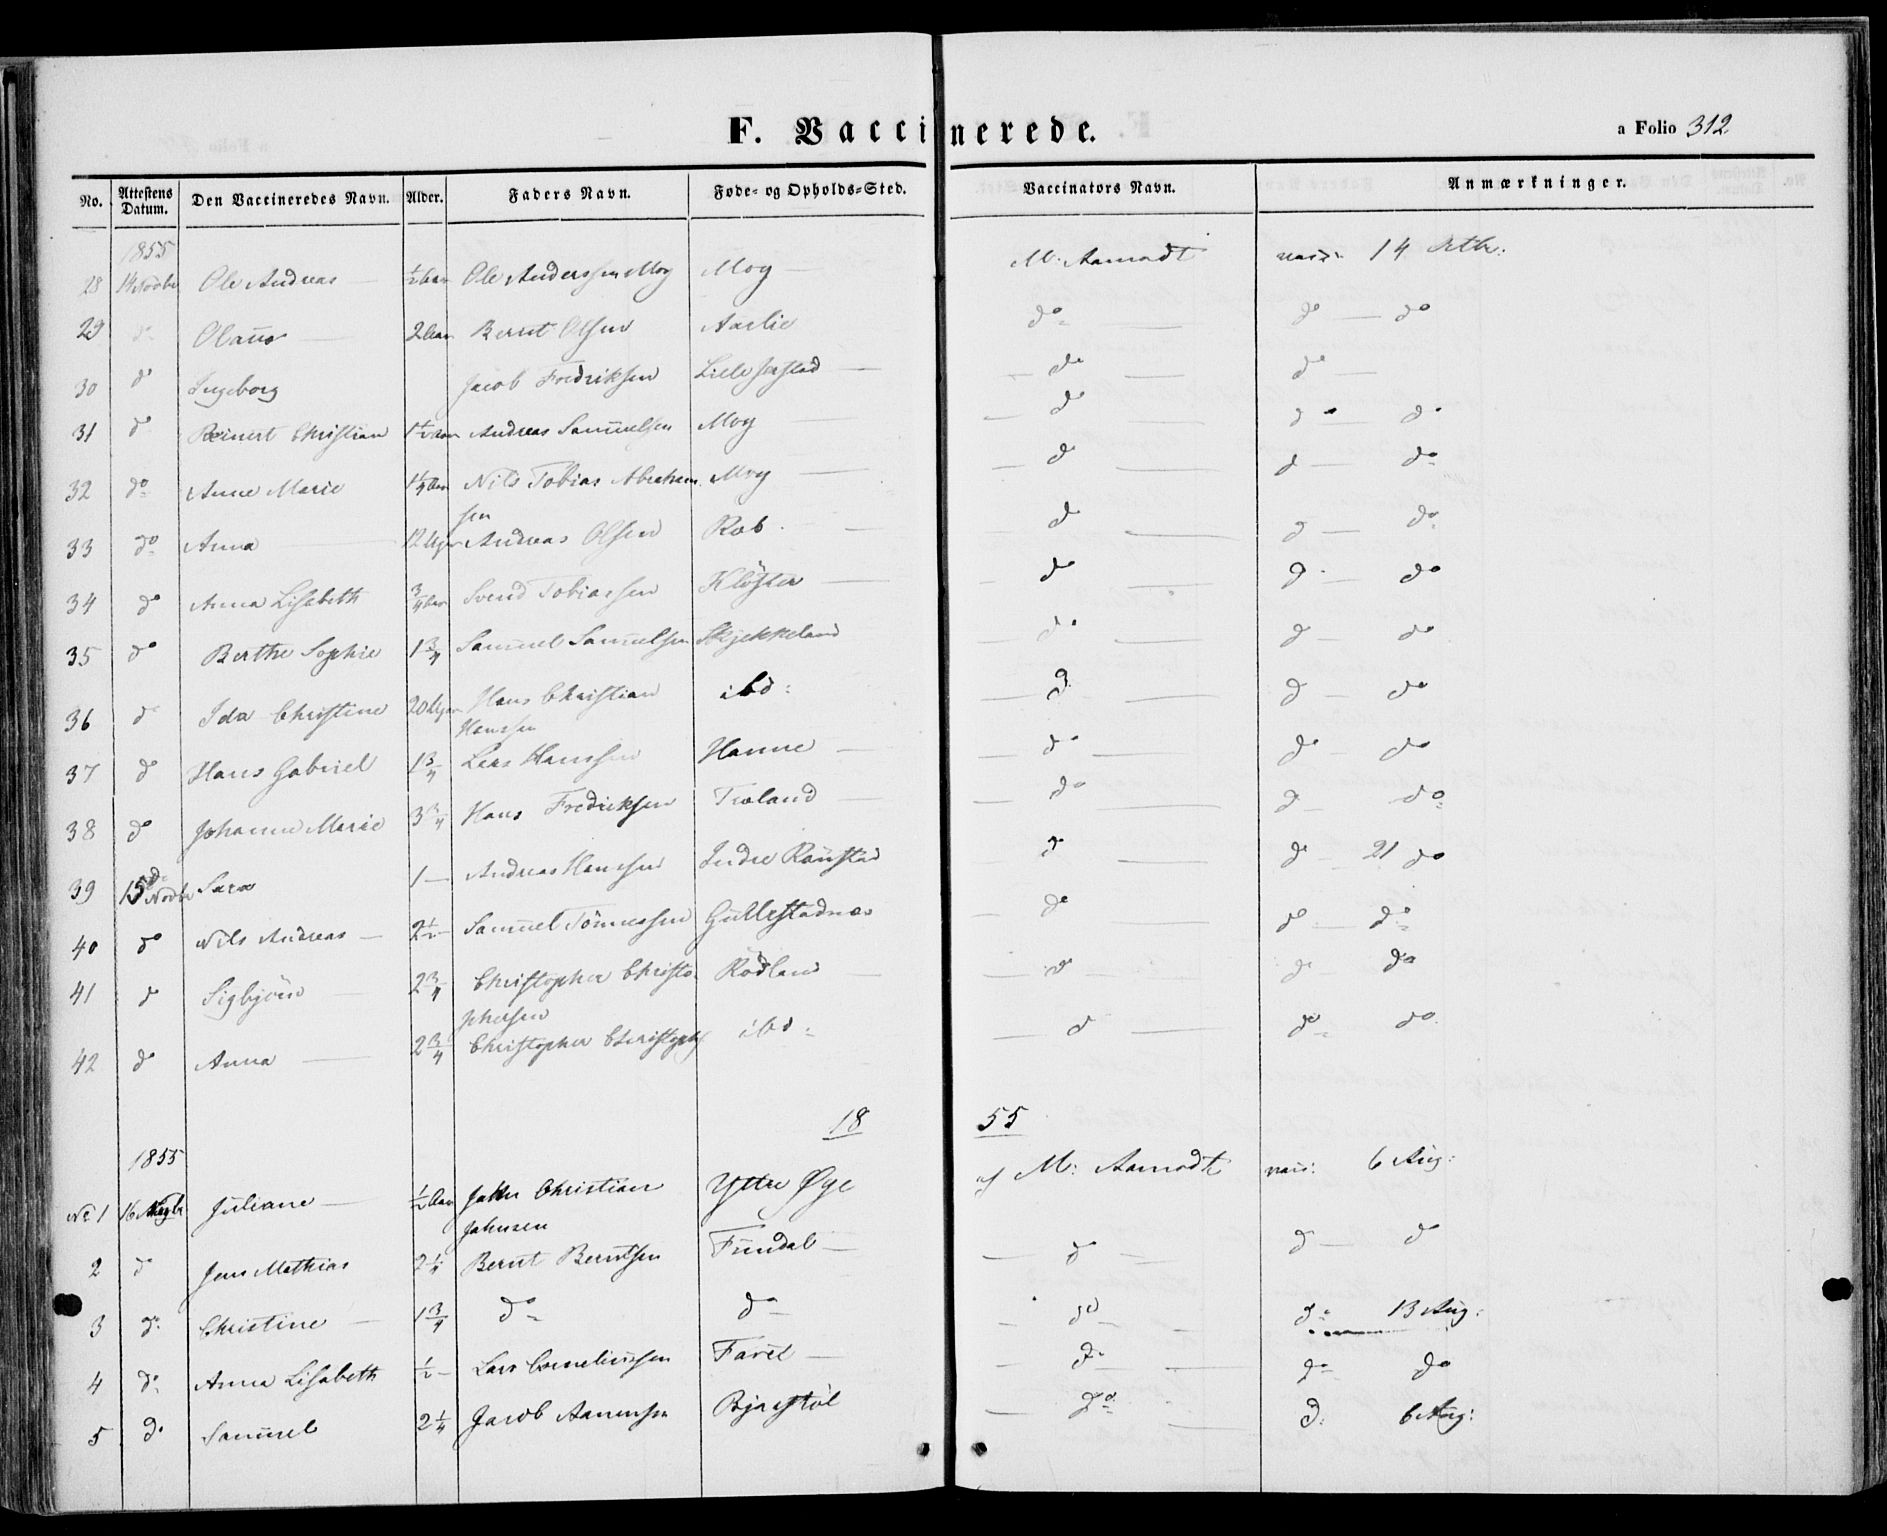 F. Vaccinerede.
a Folio 312
No. Attestens Datum. Den Vaccineredes Navn. Alder. Faders Navn. Føde- og Opholds-Sted. Vaccinators Navn. Anmærkninger.
1855
28 14 Novbr Ole Andreas ½ Aar Ole Anderssen Moy Moy M: Aamodt vacc: 14 Octbr:
29 do Olaus 2 Aar Bernt Olsen Aaslie do do do
30 do Ingeborg Jacob Fredriksen Lille do do
31 do Reinert Christian 1½ Aar Andreas Samuelsen Moy do do do
32 do Anne Marie 1¼ Aar Nils Tobias Abraham Moy do do do
sen
33 do Anna 12 Uger Andreas Olsen Rob do do do
34 do Anna Lisabeth ¾ Aar Svend Tobiassen Klöster do do do
35 do Berthe Sophie 1¾ Samuel Samuelsen Skjekkeland do do do
36 do Ida Christine 20 Uger Hans Christian ibd: do do do
Hanssen
37 do Hans Gabriel 1¾ Lars Hanssen Hanne do do do
38 do Johanne Marie 3¾ Hans Fredriksen Træland do do do
39 15de Novbr Sara 1 Andreas Hanssen Indre do do 21 do
40 do Nils Andreas 2½ Samuel Tönnessen Gullestadnes do do do
41 do Sigbjörn 2¾ Christopher Christo Rödland do do do
phersen
42 do Anna 2¾ Christopher Christoph ibd: do do do
18 55
1855
No 1 16 Juliane ½ Aar Christian Yttre Øye af M: Aamodt vacc: 6 Aug:
Jahnsen
2 do Jens Mathias 2¼ Bernt Berntsen do do do
3 do Christine 1¾ do do do do 13 Aug:
4 do Anna Lisabeth ½ Lars Corneliussen do do do
5 do Samuel 2¼ Jacob Aanensen do do 6 Aug: